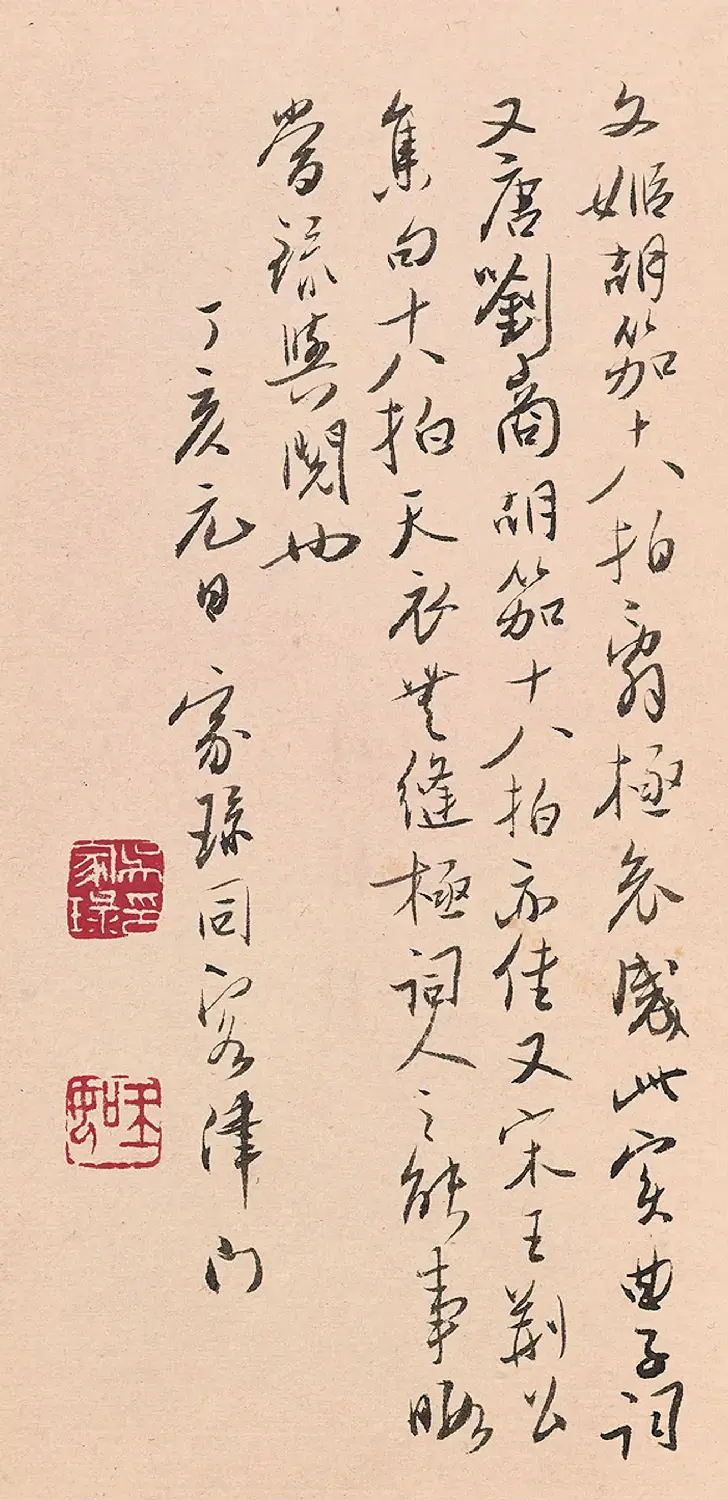 文姬胡笳十八拍窮極哀感此实曲子詞
又唐劉商胡笳十八拍亦佳又宋王荆公
集句十八拍天衣無縫極詞人之能事暇
當録與閱也
丁亥元日 家琭同客津门
吳印家琭